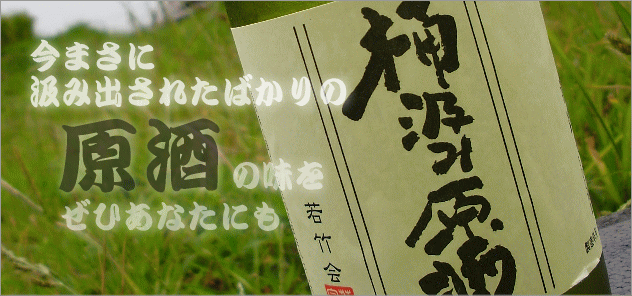 今まさに
汲み出されたばかりの
原酒の味を
ぜひあなたにも
桶汲み原酒
若竹会